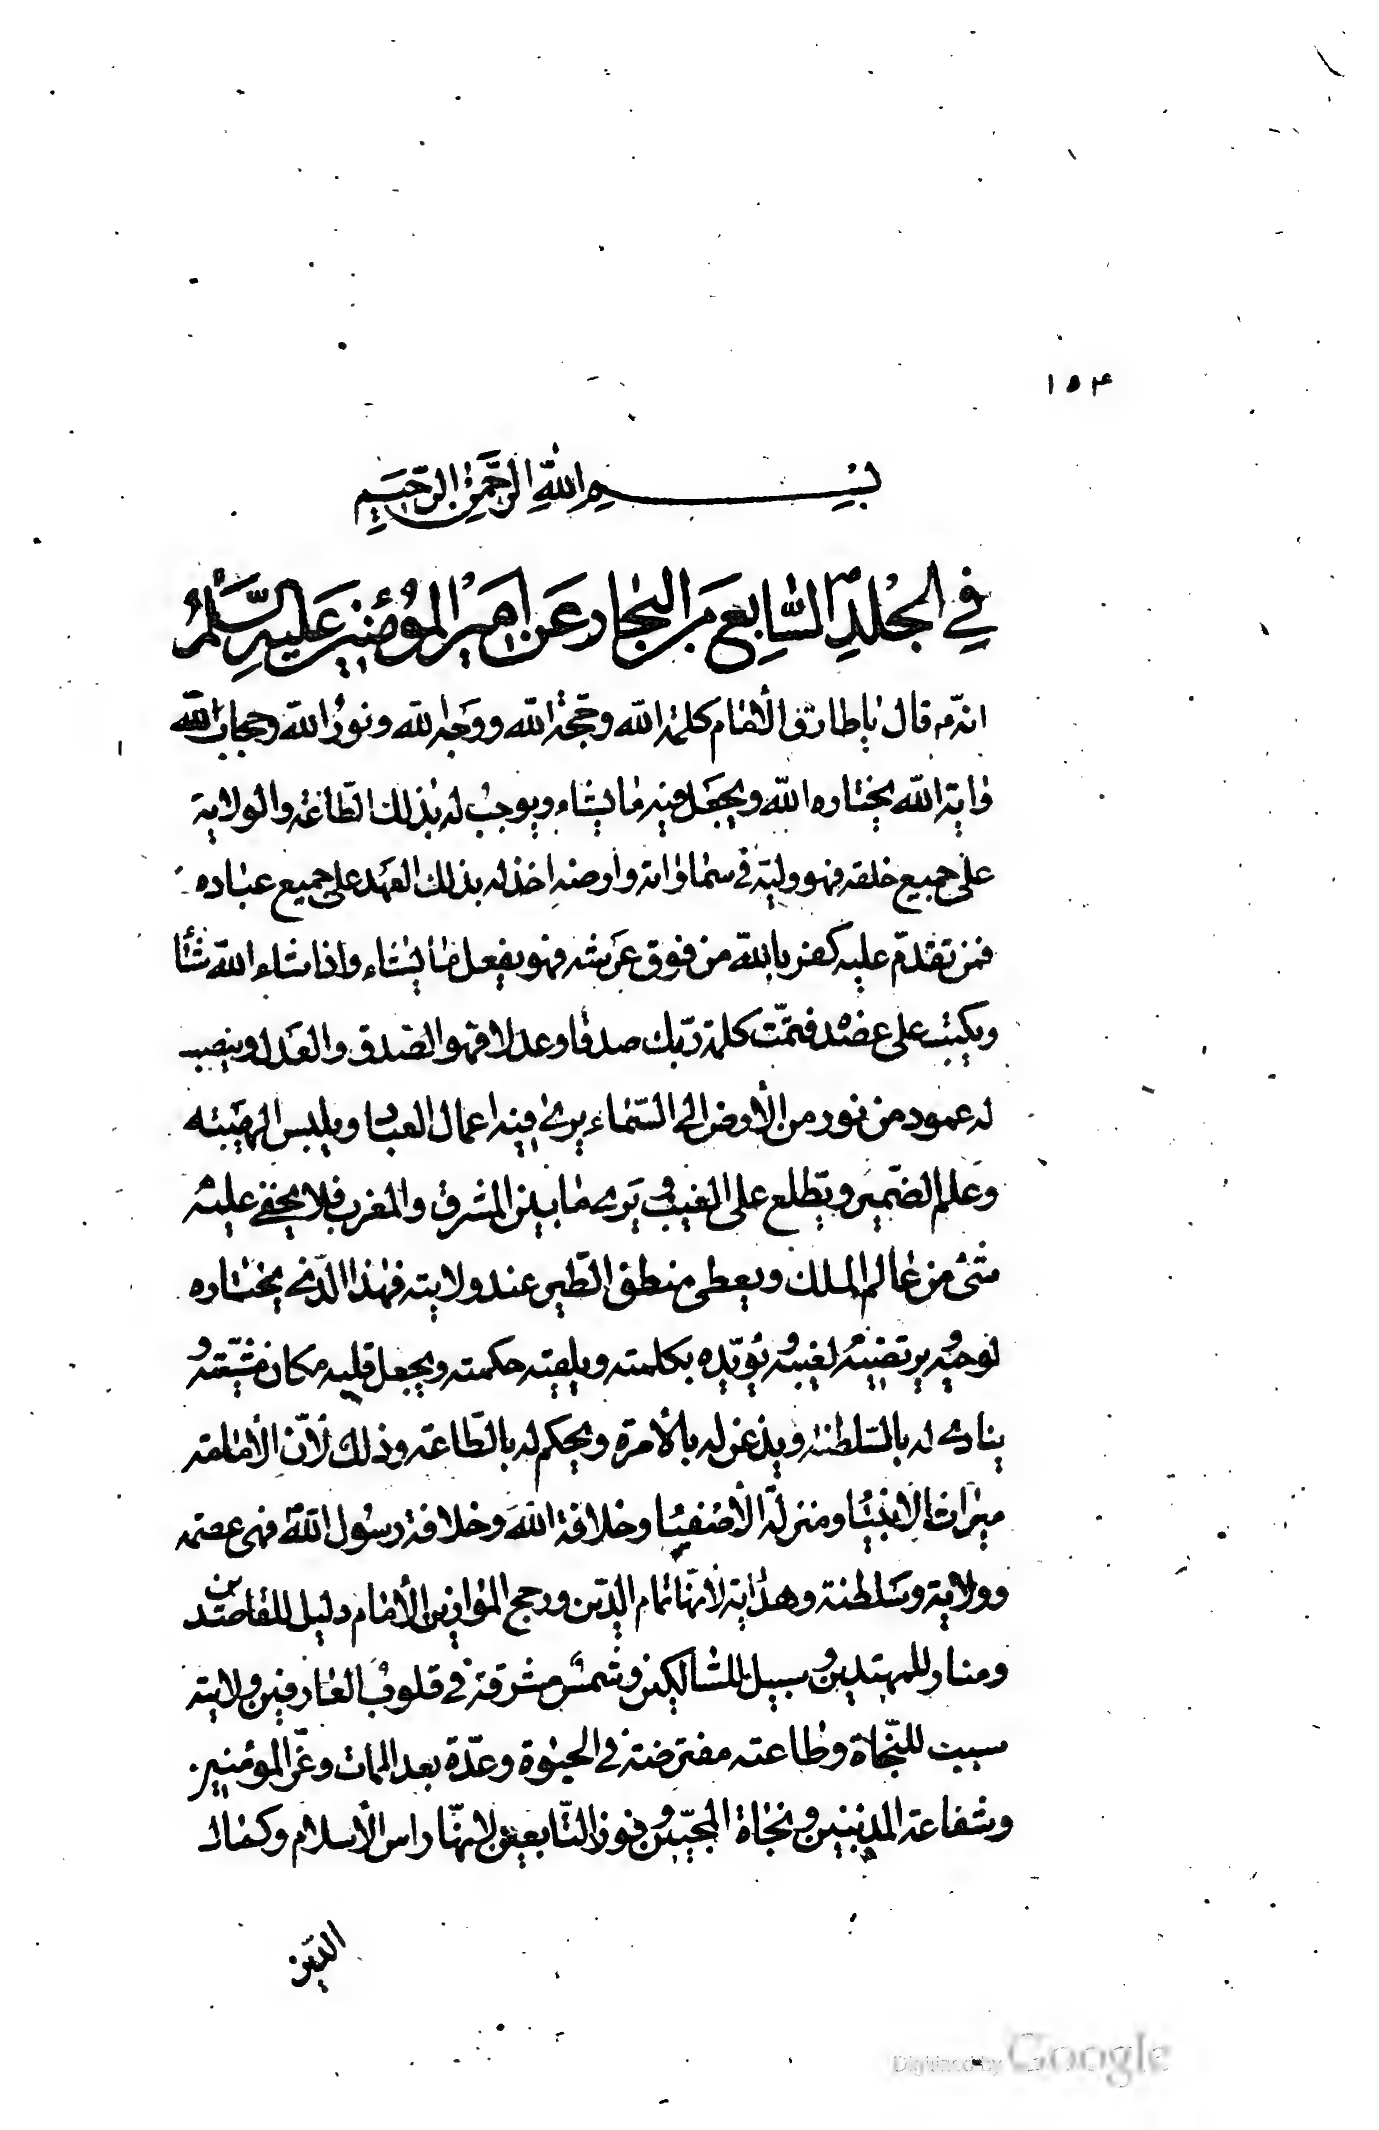 ١٥٤
بسم الله الرحمن الرحيم
في المجلد السابع من البحار عن امير المؤمنين عليه السلم
انه قال يا طارق الأمام كلمة الله وحجة الله ووجه الله ونور الله وحجاب الله
واية الله يختاره الله ويجعل فيه ما يشاء ويوجب له بذلك الطاعة والولاية
على جميع خلقه فهو وليه في سماواته وارضه اخذ له بذلك العهد على جميع عباده
فمن تقدم عليه كفر بالله من فوق عرشه فهو يفعل ما يشاء واذا شاء الله شأ
ويكتب على عضده فتمت كلمة ربك صدقا وعدلا فهو الصدق والعدل وينصب
له عمود من نور من الأرض الى السماء يرى فيه اعمال العباد ويلبس الهيبة
وعلم الضمير ويطلع على الغيب ويرى ما بين المشرق والمغرب فلا يخفى عليه
شئ من عالم الملك ويعطى منطق الطير عند ولايته فهذا الذي يختاره
لوحيه ويرتضيه لغيبه ويؤيده بكلمته ويلقيه حكمته ويجعل قلبه مكان مشيته و
ينادى له بالسلطنة ويذعن له بالأمرة ويحكم له بالطاعة وذلك لأن الأمامة
ميراث الانبيا ومنزلة الأصفيا وخلافة الله وخلافة رسول الله فهي عصمة
وولاية وسلطنة وهداية لأنها تمام الدين ورجح الموازين الأمام دليل للقاصدين
ومنار للمهتدين وسبيل للسالكين وشمس مشرقة في قلوب العارفين ولايته
سبب للنجاة وطاعته مفترضة في الحيوة وعدة بعد الممات وعز المؤمنين
وشفاعة المذنبين ونجاة المحبين وفوز التابعين لانها راس الأسلام وكمال
الدين
Digitized by Google